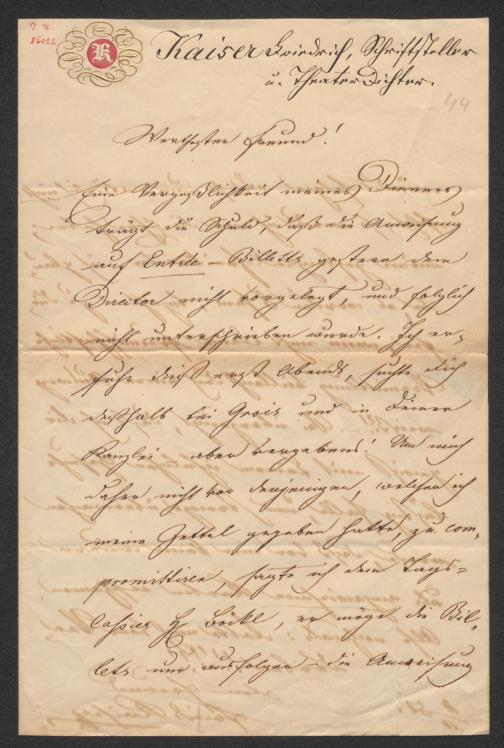 I. N.
56022
K
Kaiser Friedrich, Schriftsteller
u. Theater Dichter.
44
Werthester Freund!
Eine Vergeßlichkeit meines Dieners
trägt die Schuld, daß die Anweisung
auf Entrée-Billetts gestern dem
Director nicht vorgelegt, und folglich
nicht unterschrieben wurde. Ich er-
fuhr dieß erst Abends, suchte dich
deßhalb bei Grois und in deiner
Kanzlei aber vergebens! Um mich
daher nicht vor denjenigen, welchen ich
meine Zettel gegeben hatte, zu com-
promittiren, sagte ich dem Tags-
cassier H Böckl, er möge die Bil-
lets nur ausfolgen – die Anweisung